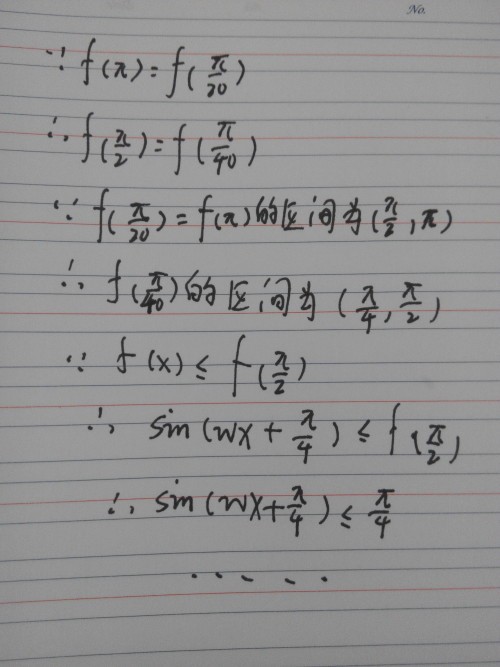 No.
∵ f(π) = f(π/20)
∴ f(π/2) = f(π/40)
∵ f(π/20) = f(π)的区间为(π/2, π)
∴ f(π/40)的区间为(π/4, π/2)
∵ f(x) ≤ f(π/2)
∴ sin(wx + π/4) ≤ f(π/2)
∴ sin(wx + π/4) ≤ π/4
......